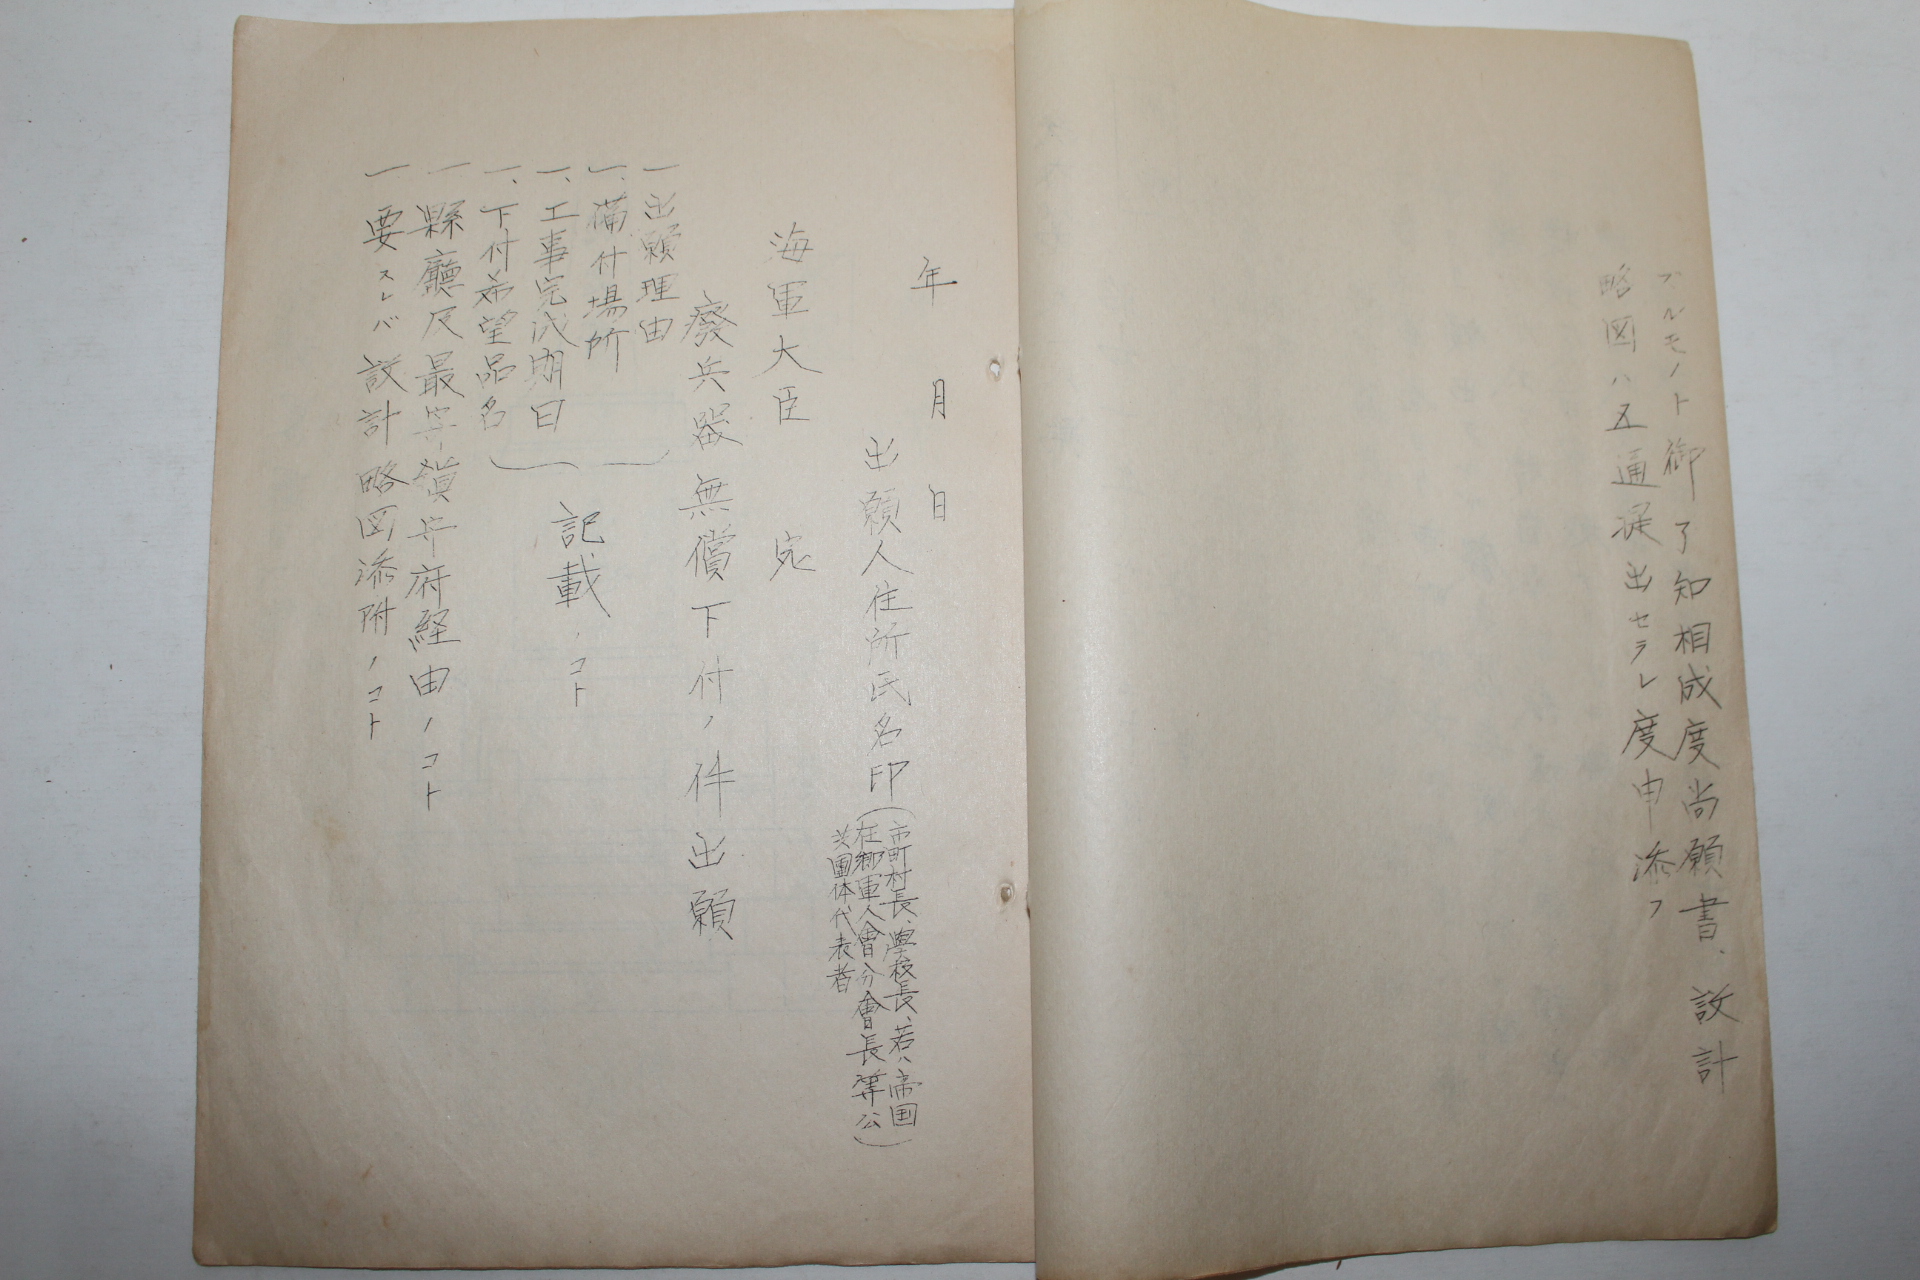 ブルモノト御了知相成度尚願書、設計
略図ハ五通提出セラレ度申添フ
年 月 日
出願人住所氏名印(市町村長、學校長、若ハ帝国
在郷軍人會分會長等公
共團体代表者)
海軍大臣 宛
廢兵器無償下付ノ件出願
一 出願理由
一、備付場所
一、工事完成期日
一、下付希望品名
記載ノコト
一 縣廳及最寄鎮守府経由ノコト
一 要スレバ設計略図添附ノコト